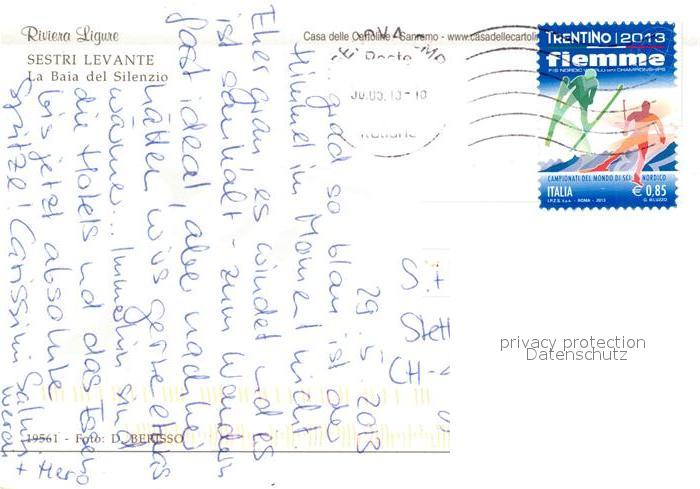 Riviera Ligure
SESTRI LEVANTE
La Baia del Silenzio
Casa delle Cartoline - Sanremo - www.casadellecartolin
30.05.13-18
TRENTINO 2013
fiemme
FIS NORDIC WORLD SKI CHAMPIONSHIPS
CAMPIONATI DEL MONDO DI SCI NORDICO
ITALIA € 0,85
I.P.Z.S. S.p.A. - ROMA - 2013
29.5.2013
grad so blau ist der
Himmel im Moment nicht
Eher grau, es windet und es
ist saukalt - zum Wandern
fast ideal, aber nachher
hätten wir's gerne etwas
wärmer... Immerhin sind
die Hotels und das Essen
bis jetzt absolute
Spitze! Carissimi Saluti
+
S. +
Stett
CH-4
privacy protection
Datenschutz
19561 - Foto: D. BERISSO